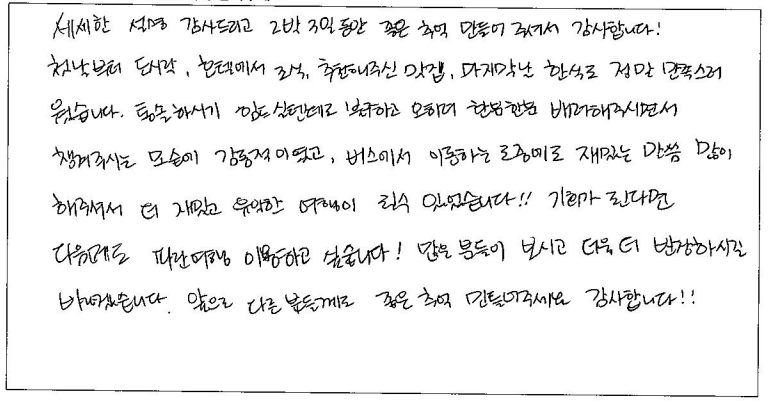 세세한 설명 감사드리고 2박 3일동안 좋은 추억 만들어 주셔서 감사합니다!
첫날부터 도시락, 호텔에서 조식, 추천해주신 맛집, 마지막날 한식도 정말 만족스러
웠습니다. 통솔하시기 힘드실텐데도 불구하고 오히려 한분한분 배려해주시면서
챙겨주시는 모습에 감동적이였고, 버스에서 이동하는 도중에도 재밌는 말씀 많이
해주셔서 더 재밌고 유익한 여행이 될수 있었습니다!! 기회가 된다면
다음에도 파란여행 이용하고 싶습니다! 많은 분들이 보시고 더욱 더 번창하시길
바라겠습니다. 앞으로 다른 분들께도 좋은 추억 만들어주세요 감사합니다!!